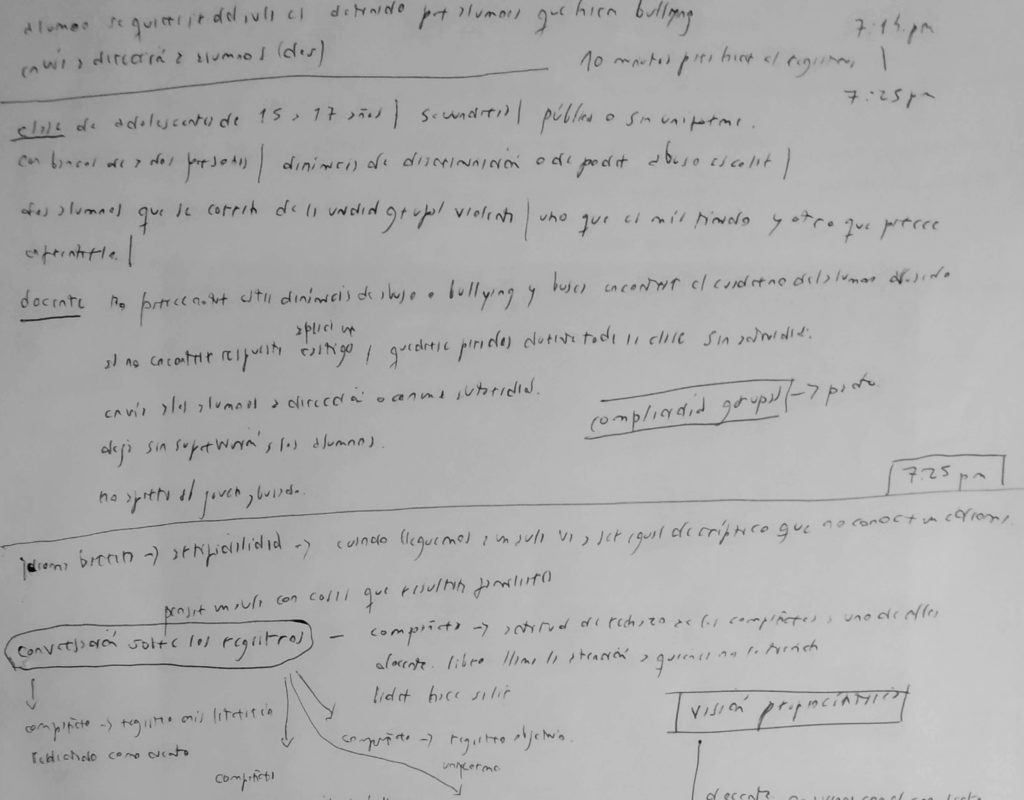 alumno se quiere ir del aula es detenido por alumnos que hacen bullying
7:15 pm
envía a dirección a alumnos (dos)
10 minutos para hacer el registro
7:25 pm
clase de adolescentes de 15 a 17 años | secundaria | pública o sin uniforme.
con bancos de a dos personas | dinámicas de discriminación o de poder abuso escolar |
dos alumnos que se corren de la unidad grupal violenta | uno que es mal mirado y otro que parece
docente no parece notar estas dinámicas de abuso o bullying y busca encontrar el cuaderno del alumno abusado
aplica un
al no encontrar respuesta castigo, quedarse parados durante toda la clase sin actividad.
envía a los alumnos a dirección o como autoridad.
complicidad grupal -> pacto
deja sin supervisión a los alumnos.
no al joven abusado.
7:25 pm
idioma -> -> cuando lleguemos a un aula va a ser igual de críptico que no conocer un idioma.
pensar un aula con cosas que resultan familiares
conversación sobre los registros - compañera -> actitud de rechazo de los compañeros a uno de ellos
docente. libro llama la atención a quienes no lo traen
líder hace salir
visión propiocéntrica
compañero -> registro más literario
relatado como cuento
compañero -> registro objetivo.
compañera
docente